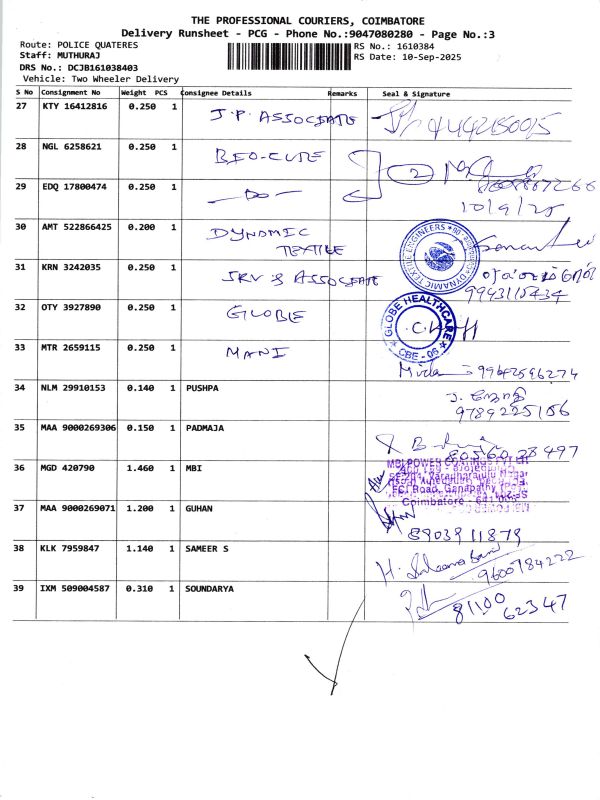 THE PROFESSIONAL COURIERS, COIMBATORE
Delivery Runsheet - PCG - Phone No.:9047080280 - Page No.:3
Route: POLICE QUATERES
RS No.: 1610384
Staff: MUTHURAJ
RS Date: 10-Sep-2025
DRS No.: DCJB161038403
Vehicle: Two Wheeler Delivery
S No Consignment No Weight PCS Consignee Details Remarks Seal & Signature
27 KTY 16412816 0.250 1 J.P. ASSOCIATE
28 NGL 6258621 0.250 1 BEO-CURE 2
29 EDQ 17800474 0.250 1 -DO-
10/9/25
30 AMT 522866425 0.200 1 DYNAMIC TEXTILE
DYNAMIC TEXTILE ENGINEERS
31 KRN 3242035 0.250 1 SRV & ASSOCIATE
9943115434
32 OTY 3927890 0.250 1 GLOBE
GLOBE HEALTHCARE CBE - 06
33 MTR 2659115 0.250 1 MANI
9942596274
34 NLM 29910153 0.140 1 PUSHPA
9789225156
35 MAA 9000269306 0.150 1 PADMAJA
80560 28497
36 MGD 420790 1.460 1 MBI
FCI Road, Ganapathy
Coimbatore
37 MAA 9000269071 1.200 1 GUHAN
8903911879
38 KLK 7959847 1.140 1 SAMEER S
9600784222
39 IXM 509004587 0.310 1 SOUNDARYA
81100 62347